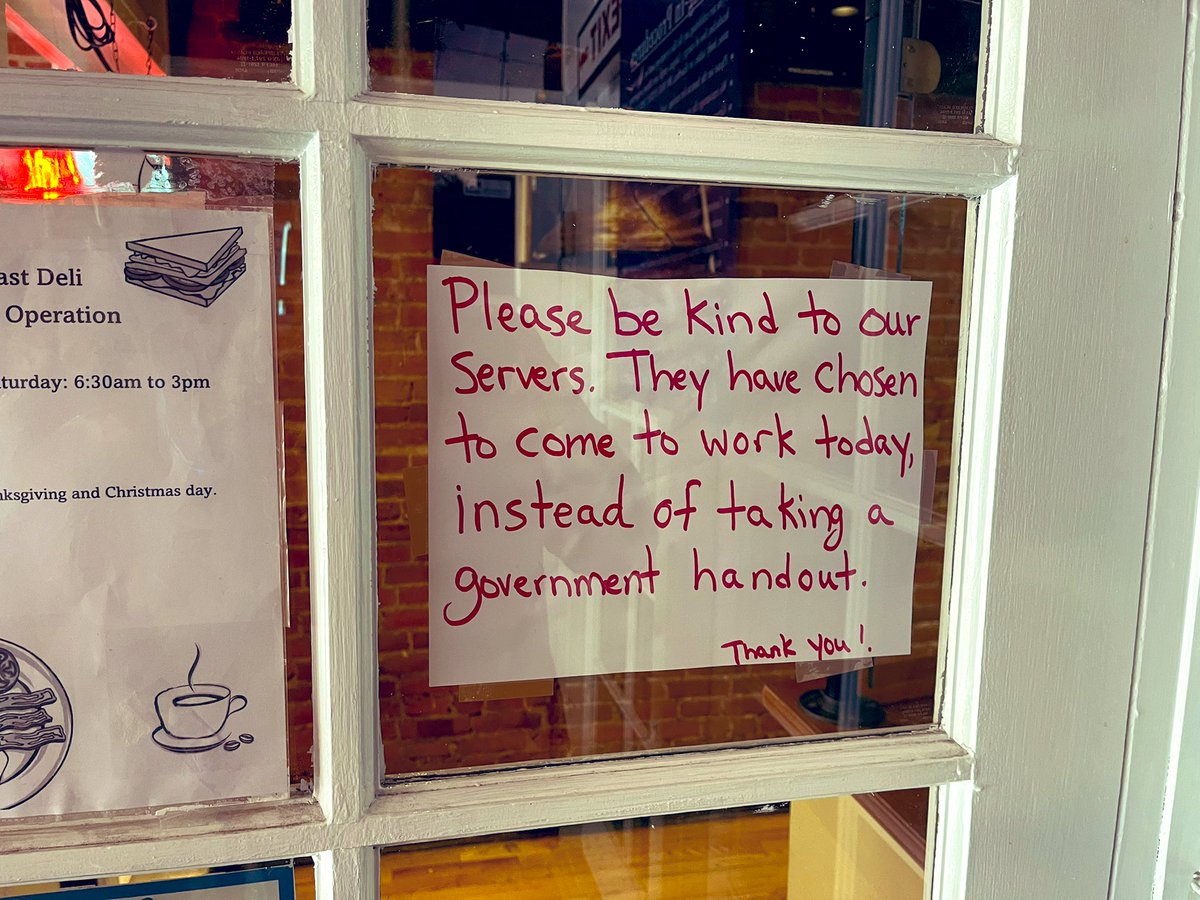 EXIT
ast Deli
Operation
turday: 6:30am to 3pm
nksgiving and Christmas day.
Please be kind to our
Servers. They have chosen
to come to work today,
instead of taking a
government handout.
Thank you!